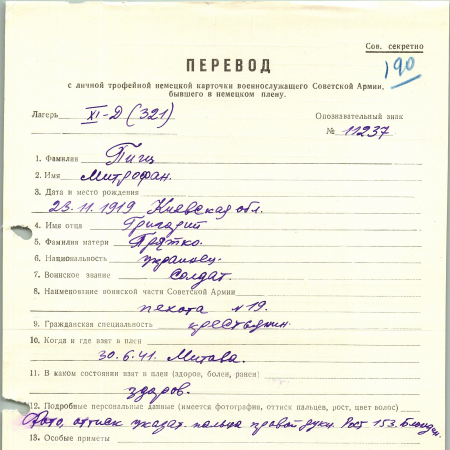 Сов. секретно
190
ПЕРЕВОД
с личной трофейной немецкой карточки военнослужащего Советской Армии,
бывшего в немецком плену.
Лагерь XI-Д (321) Опознавательный знак
№ 11237
1. Фамилия Пигц
2. Имя Митрофан.
3. Дата и место рождения
23.11.1919 Киевская обл.
4. Имя отца Григорий
5. Фамилия матери Прятко.
6. Национальность украинец.
7. Воинское звание солдат.
8. Наименование воинской части Советской Армии
пехота №19.
9. Гражданская специальность крестьянин.
10. Когда и где взят в плен
30.6.41. Митава.
11. В каком состоянии взят в плен (здоров, болен, ранен)
здоров.
12. Подробные персональные данные (имеется фотография, оттиск пальцев, рост, цвет волос)
Фото, оттиск указат. пальца правой руки. Рост 153. Блондин.
13. Особые приметы